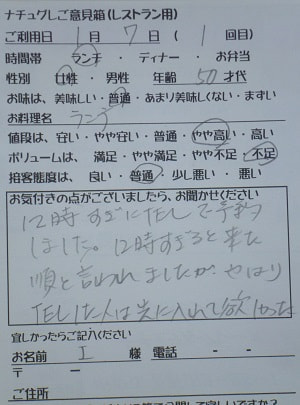 ナチュグしご意見箱(レストラン用)
ご利用日 1月 7日 ( 1 回目)
時間帯 ランチ・ディナー・お弁当
性別 女性・男性 年齢 50才代
お味は、美味しい・普通・あまり美味しくない・まずい
お料理名 ランチ
値段は、安い・やや安い・普通・やや高い・高い
ボリュームは、満足・やや満足・やや不足・不足
接客態度は、良い・普通・少し悪い・悪い
お気付きの点がございましたら、お聞かせください
12時すぎにTELで予約
しました。12時すぎると来た
順と言われましたが、やはり
TELした人は先に入れて欲しかった
宜しかったらご記入ください
お名前 I 様 電話 - -
〒 ー
ご住所